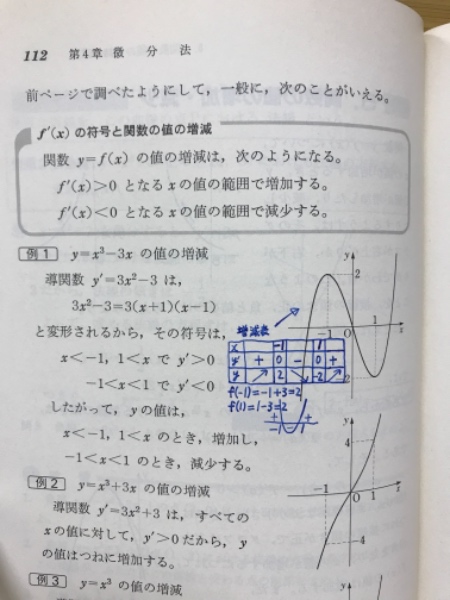 112 第4章 微分法
前ページで調べたようにして，一般に，次のことがいえる。
f′(x) の符号と関数の値の増減
関数 y=f(x) の値の増減は，次のようになる。
f′(x)>0 となる x の値の範囲で増加する。
f′(x)<0 となる x の値の範囲で減少する。
例1 y=x³−3x の値の増減
導関数 y′=3x²−3 は，
3x²−3=3(x+1)(x−1)
と変形されるから，その符号は，
x<−1, 1<x で y′>0
−1<x<1 で y′<0
したがって，y の値は，
x<−1, 1<x のとき，増加し，
−1<x<1 のとき，減少する。
増減表
x −1 1
y′ + 0 − 0 +
y ↗ 2 ↘ −2 ↗
f(−1)=−1+3=2
f(1)=1−3=2
+ +
−1 − 1
y
2
−1 O 1 x
2
例2 y=x³+3x の値の増減
導関数 y′=3x²+3 は，すべての
x の値に対して，y′>0 だから，y
の値はつねに増加する。
y
4
−1 O 1 x
−4
例3 y=x³ の値の増減
y